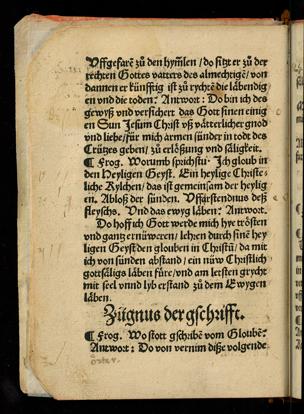 Uffgefarē zů den hym̃len / do sitzt er zů der
rechten Gottes vatters des almechtigē / von
dannen er künfftig ist zů rychtē die läbendig
en vnd die toden. Antwort: Do bin ich des
gewyß vnd versichert das Gott sinen einig
en Sun Jesum Christ vß vätterlicher gnod
vnd liebe / für mich armen sünder in tod des
Crützes geben / zů erlößung vnd säligkeit.
¶ Frog. Worumb sprichstu · Jch gloub in
den Heyligen Geyst. Ein heylige Christe-
liche Kylchen / das ist gemeinsam der heylig
en. Abloß der sünden. Uffürstendnus deß
fleyschs. Vnd das ewyg läben? Antwort.
Do hoff ich Gott werde mich hye trösten
vnd gantz ernüweren / lehren durch sinē hey
ligen Geyst den glouben in Christū / da mit
ich von sünden abstand / ein nüw Christlich
gottsäligs läben füre / vnd am letsten grycht
mit seel vnnd lyb erstand zů dem Ewygen
läben.
Zügnus der gschrifft.
¶ Frog. Wo stott gschribē vom Gloubē?
Antwort: Do von vernim diße volgende